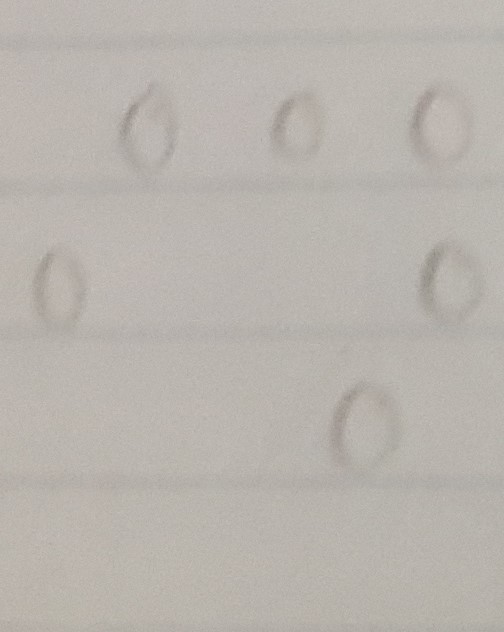 0 0 0
0 0
0